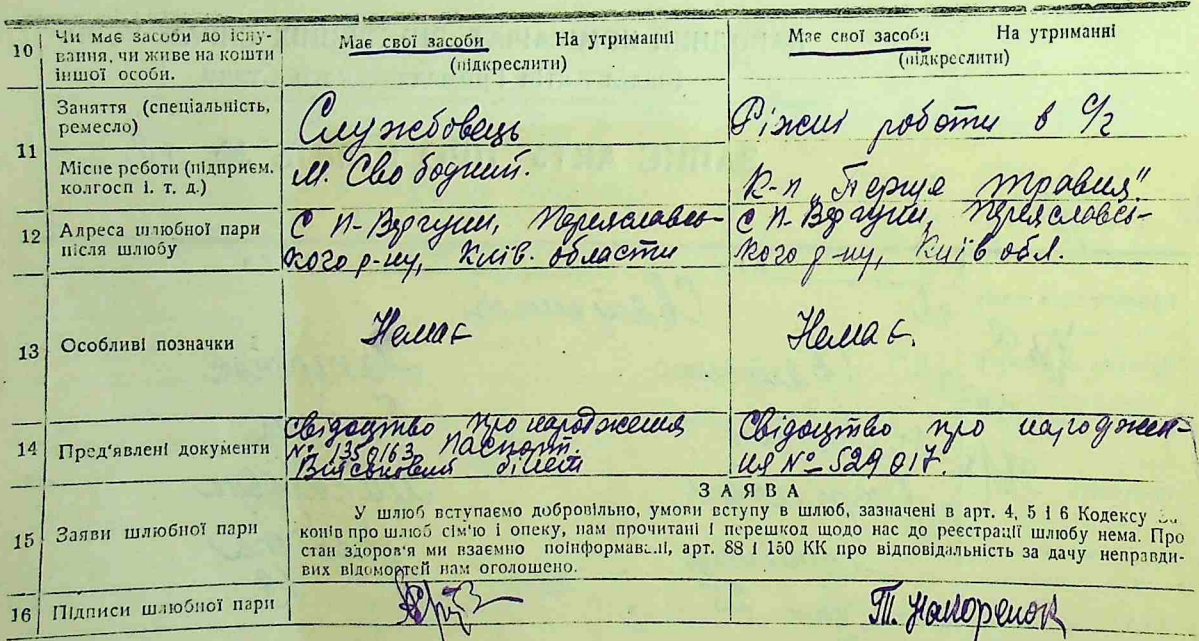 10 Чи має засоби до існу-
вання, чи живе на кошти
іншої особи.
Має свої засоби На утриманні
(підкреслити)
Має свої засоби На утриманні
(підкреслити)
11
Заняття (спеціальність,
ремесло)
Службовець
Ріжні роботи в с/г
Місце роботи (підприєм.
колгосп і. т. д.)
м. Свободний.
К-п „Перше травня"
12 Адреса шлюбної пари
після шлюбу
С П-Вергуни, Переяславсь-
кого р-ну, Київ. области
С П-Вергуни, Переяславсь-
кого р-ну, Київ обл.
13 Особливі позначки
Немає
Немає.
14 Пред'явлені документи
Свідоцтво про народження
№ 1350163 Паспорт.
Військовий білет
Свідоцтво про народжен-
ня № 529017.
15 Заяви шлюбної пари
ЗАЯВА
У шлюб вступаємо добровільно, умови вступу в шлюб, зазначені в арт. 4, 5 і 6 Кодексу
конів про шлюб сім'ю і опеку, нам прочитані і перешкод щодо нас до реєстрації шлюбу нема. Про
стан здоров'я ми взаємно поінформавалі, арт. 88 і 150 КК про відповідальність за дачу неправди-
вих відомостей нам оголошено.
16 Підписи шлюбної пари
Т. Накоренок